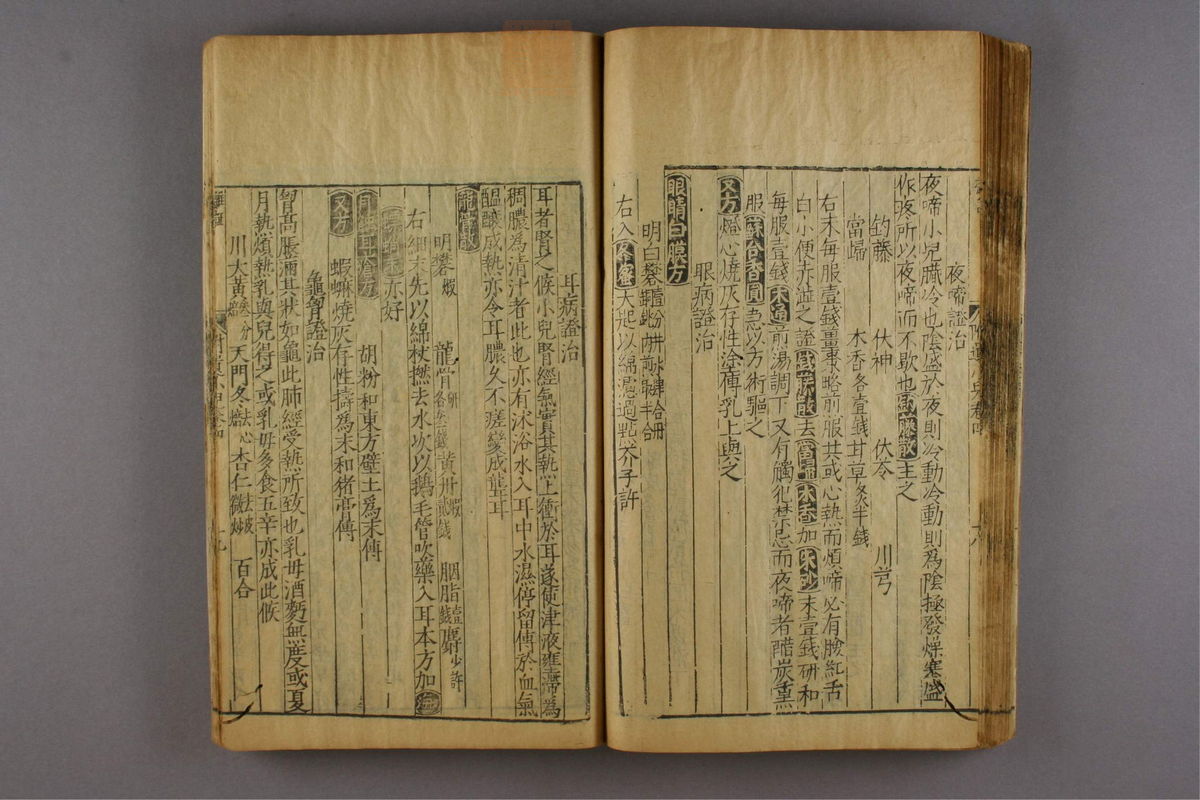 夜啼證治
夜啼小兒臟冷也陰盛於夜則冷動冷動則爲陰極發燥寒盛
作疼所以夜啼而不歇也釣藤散主之
釣藤 伏神 伏苓 川芎
當歸 木香各壹錢 甘草炙半錢
右末每服壹錢薑棗略煎服其或心熱而煩啼必有臉紅舌
白小便赤澁之證釣藤散去當歸木香加朱砂末壹錢研和
每服壹錢木通煎湯調下又有觸犯禁忌而夜啼者醋炭熏
服蘇合香圓急以方術驅之
又方燈心燒灰存性塗痺乳上與之
眼病證治
眼睛白膜方
明白礬
右入大起以綿濾過點芥子許
耳病證治
耳者腎之候小兒腎經氣實其熱上衝於耳遂使津液壅滯爲
稠膿爲清汁者此也亦有沐浴水入耳中水濕停留傅於血氣
醖釀成熱亦令耳膿久不瘥變成聾耳
龍骨散
明礬煅 龍骨研各叁錢 黃丹煅貳錢 胭脂壹錢 麝少許
右細末先以綿杖撚去水次以鵝毛管吹藥入耳本方加
亦好
耳瘡方 胡粉和東方壁土爲末傅
又方 蝦蟆燒灰存性擣爲末和猪膏傅
龜胷證治
胷高脹滿其狀如龜此肺經受熱所致也乳母酒麪無度或夏
月熱煩熱乳與兒得之或乳母多食五辛亦成此候
川大黃 天門冬去心 杏仁去皮微炒 百合